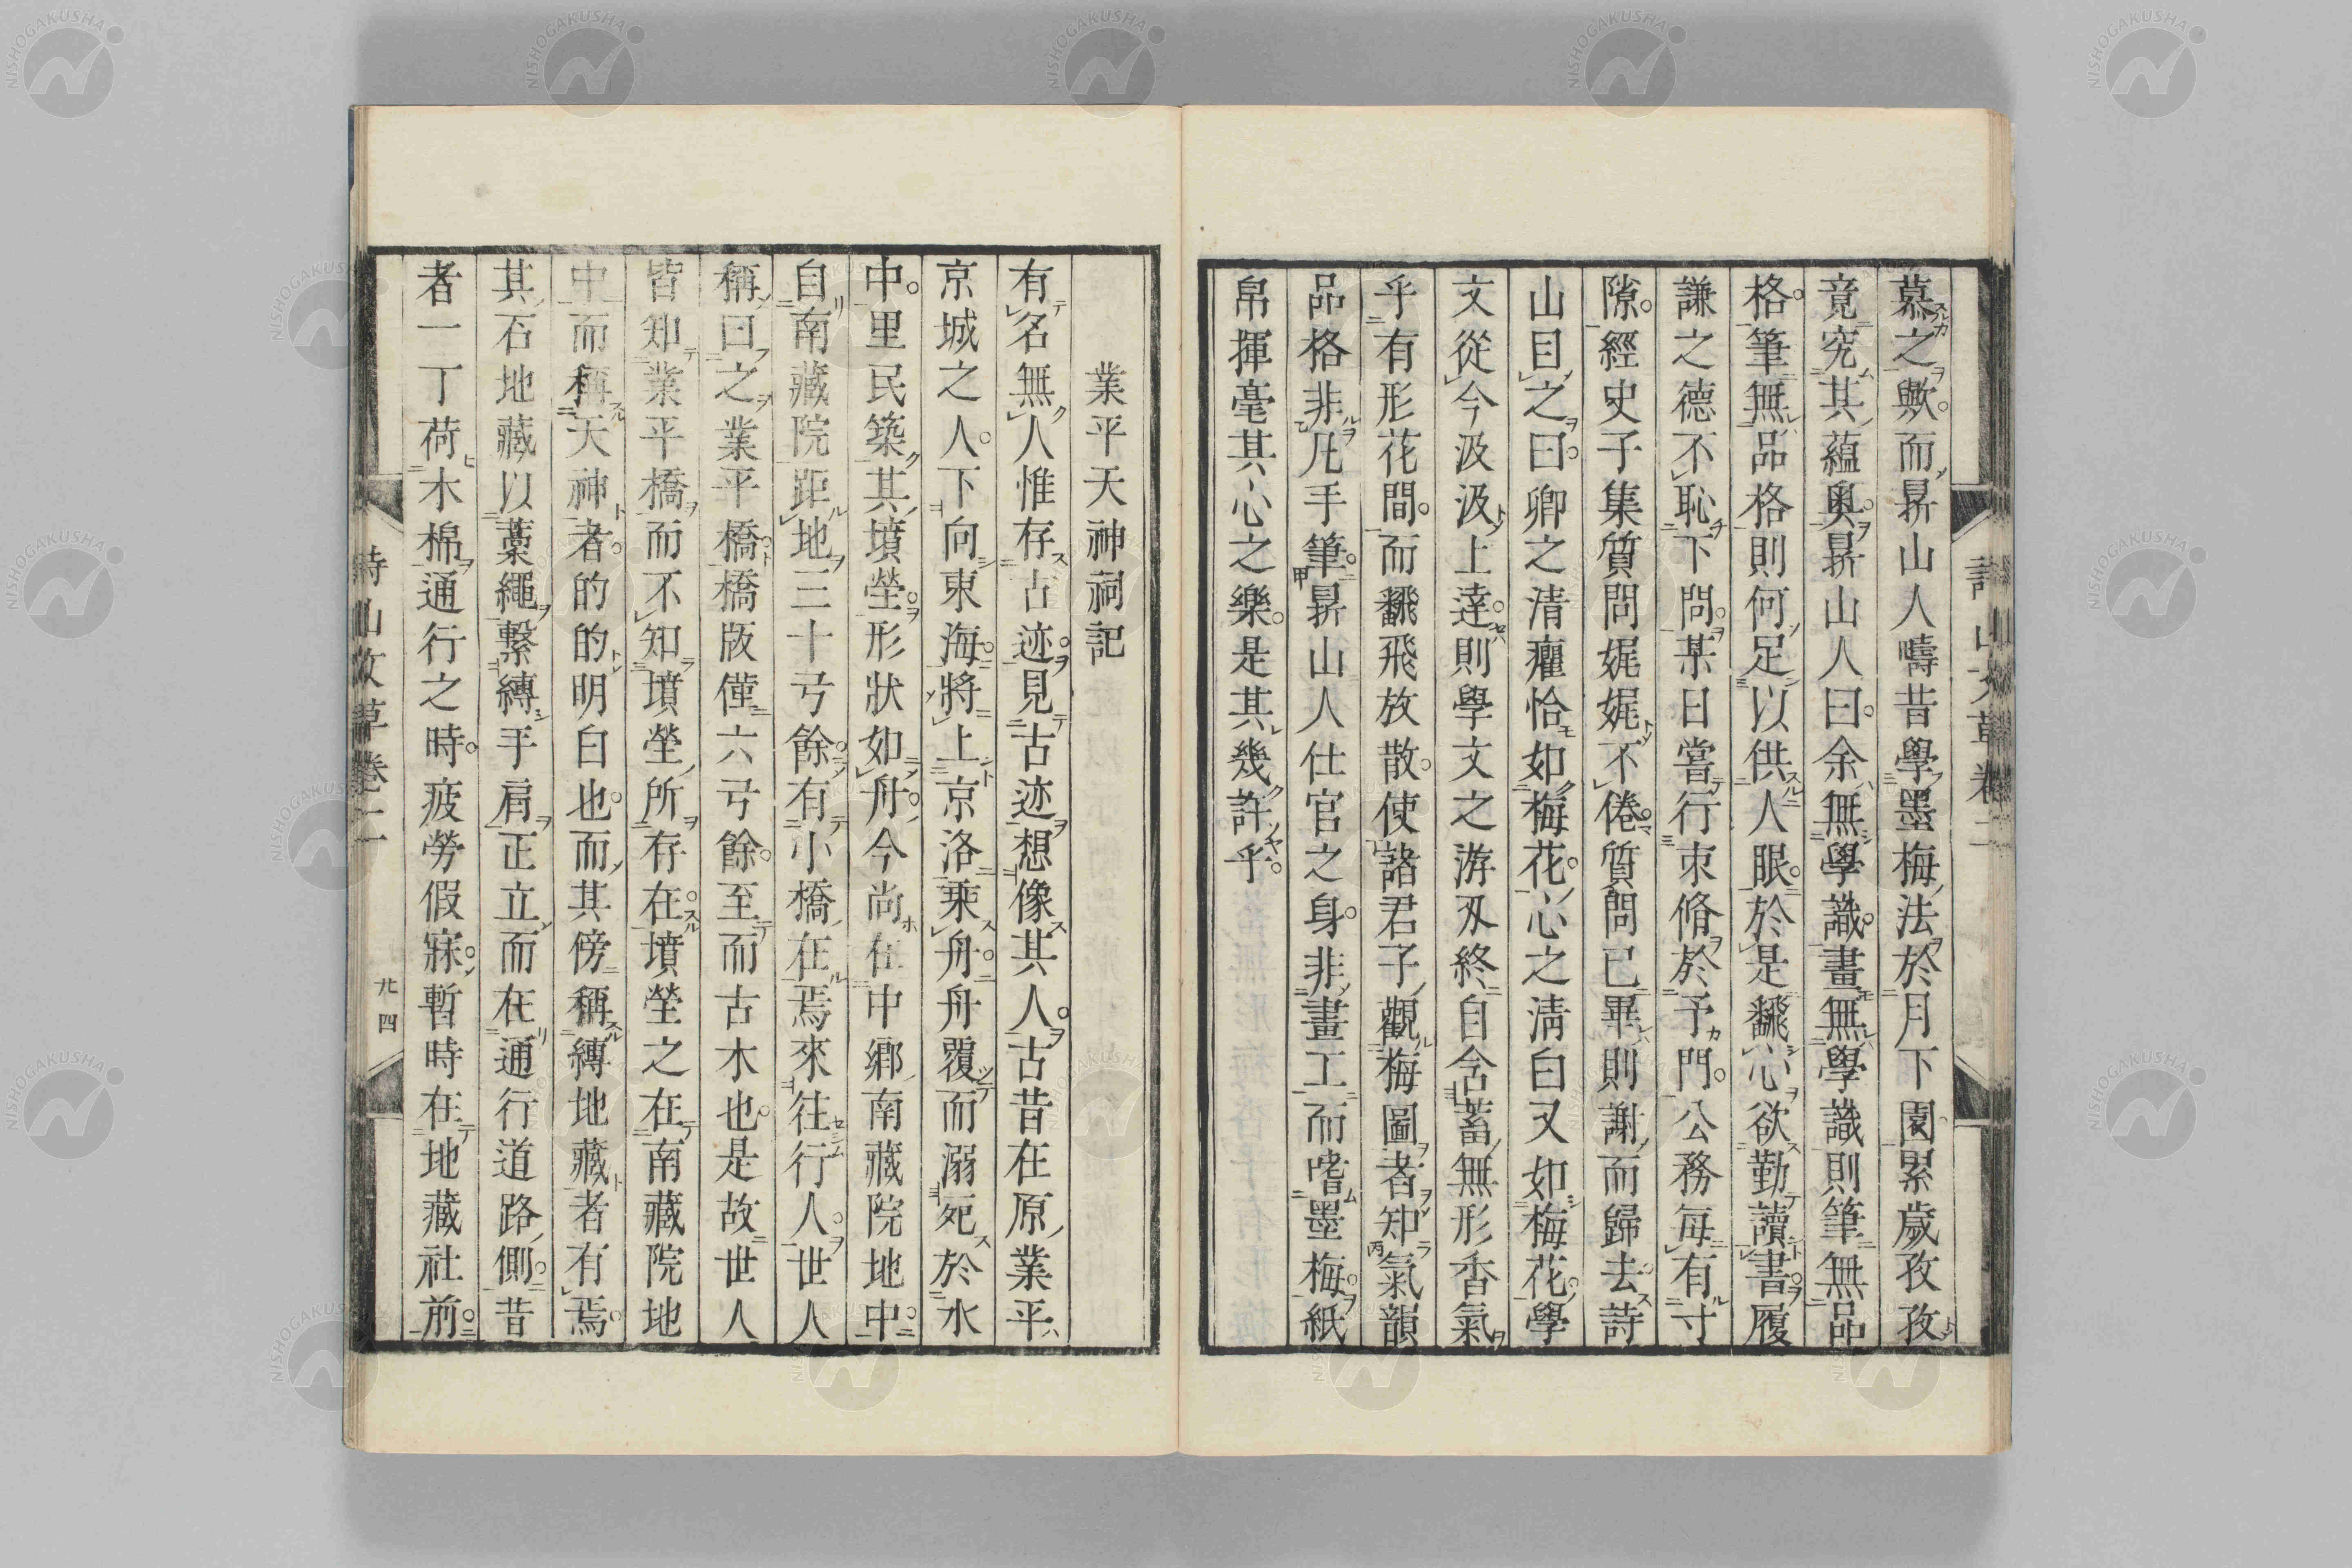 慕之歟而昇山人嚋昔學墨梅法於月下園累歲孜孜
竟究其蘊奥昇山人曰余無學識畫無學識則筆無品
格筆無品格則何足以供人眼於是飜心欲勤讀書履
謙之德不恥下問某日嘗行束脩於予門公務每有寸
隙經史子集質問娓娓不倦質問已畢則謝而歸去詩
山目之曰卿之清癯恰如梅花心之淸白又如梅花學
文從今汲汲上達則學文之游刄終自含蓄無形香氣
乎有形花間而飜飛放散使諸君子觀梅圖者知氣韻
品格非凡手筆昇山人仕官之身非畫工而嗜墨梅紙
帛揮毫其心之樂是其幾許乎
業平天神祠記
有名無人惟存古迹見古迹想像其人古昔在原業平
京城之人下向東海將上京洛乘舟舟覆而溺死於水
中里民築其墳塋形狀如舟今尚在中鄉南藏院地中
自南藏院距地三十弓餘有小橋在焉來往行人世人
稱曰之業平橋橋版僅六弓餘至而古木也是故世人
皆知業平橋而不知墳塋所存在墳塋之在南藏院地
中而稱天神者的的明白也而其傍稱縛地藏者有焉
其石地藏以藁繩繫縛手肩正立而在通行道路側昔
者一丁荷木棉通行之時疲勞假寐暫時在地藏社前
詩山文草卷二
廿四